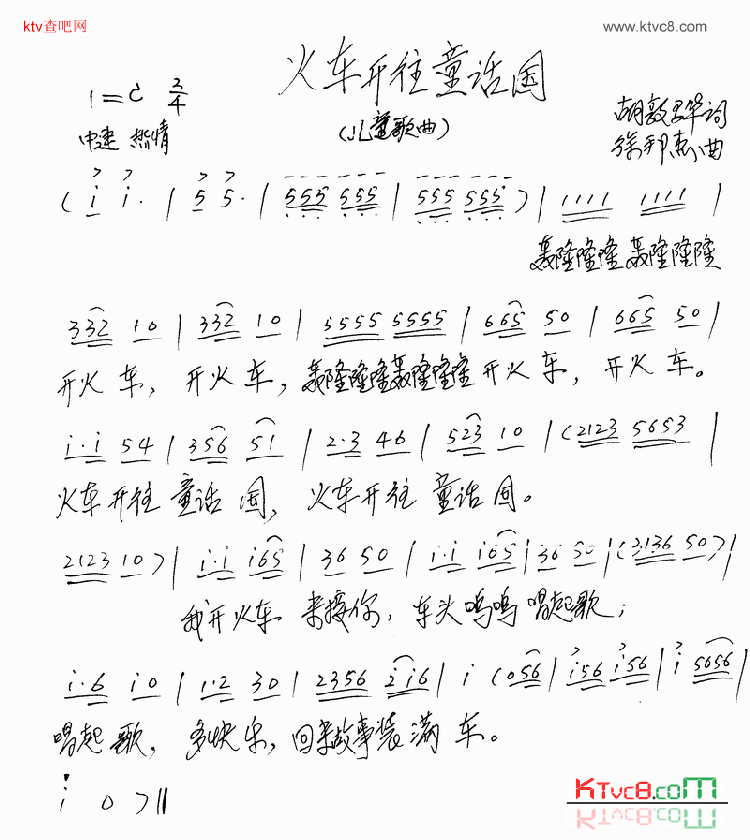 ktv查吧网
www.ktvc8.com
火车开往童话国
1=C 2/4
(儿童歌曲)
中速 热情
胡敦华词
徐邦杰曲
( i i· | 5 5· | 555 555 | 555 555 ) | 1111 1111 |
轰隆隆隆轰隆隆隆
332 10 | 332 10 | 5555 5555 | 665 50 | 665 50 |
开火车, 开火车, 轰隆隆隆轰隆隆隆 开火车, 开火车。
i·i 54 | 356 51 | 2·3 46 | 523 10 | (2123 5653 |
火车开往童话国, 火车开往童话国。
2123 10) | i·i i65 | 36 50 | i·i i65 | 36 50 | (3136 50) |
我开火车 来接你, 车头呜呜唱起歌;
i·6 i0 | 1·2 30 | 2356 2i6 | i (056 | i56 i56 | i 5656 |
唱起歌, 多快乐, 回来故事装满车。
i 0 ) ||
KTvc8.com